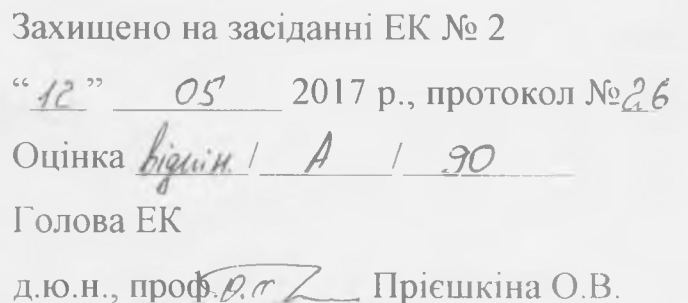 Захищено на засіданні ЕК № 2
“12” 05 2017 р., протокол №26
Оцінка відмін. / А / 90
Голова ЕК
д.ю.н., проф. Прієшкіна О.В.